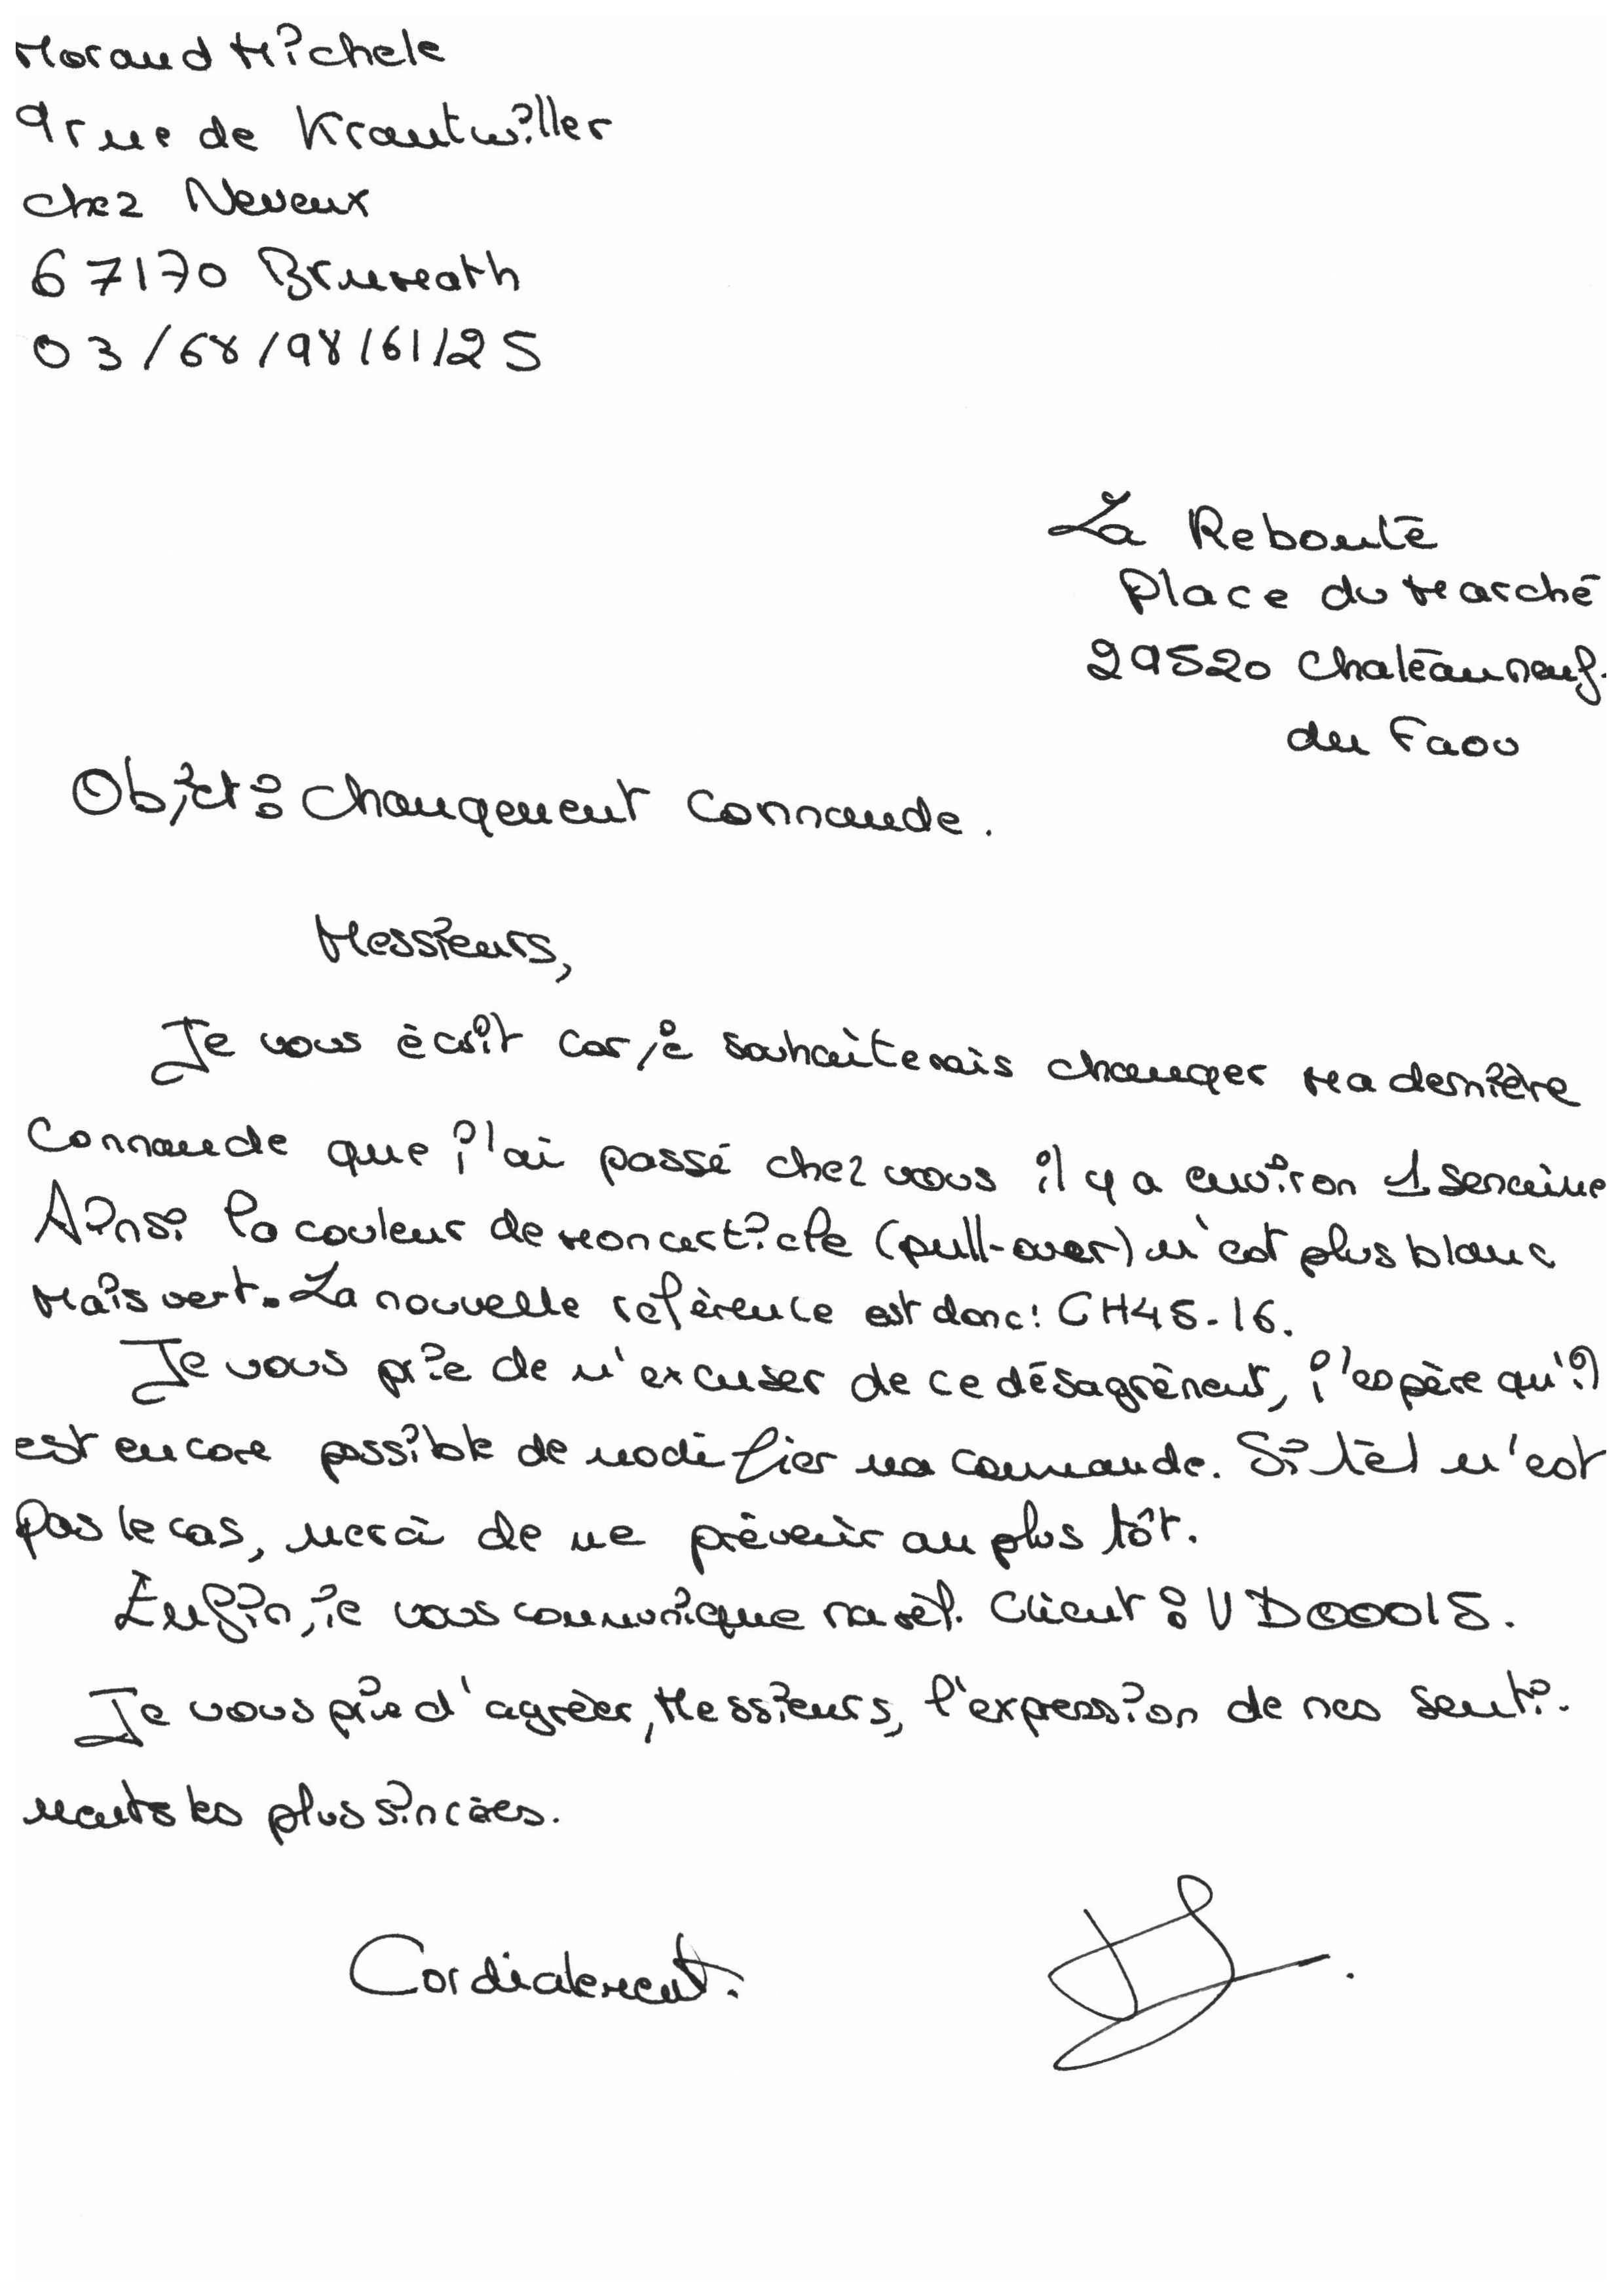 Morand Michele
9 rue de Krautwiller
chez Neveux
67170 Brumath
03/68/98/61/25
La Reboute
Place du Marché
29520 Chateauneuf.
du Faou
Objet : Changement Commande.
Messieurs,
Je vous écrit car je souhaiterais changer ma dernière
Commande que j'ai passé chez vous il y a environ 1 semaine
Ainsi la couleur de mon article (pull-over) n'est plus blanc
mais vert. La nouvelle référence est donc : CH45-16.
Je vous prie de m'excuser de ce désagrément, j'espère qu'il
est encore possible de modifier ma commande. Si tel n'est
pas le cas, merci de me prévenir au plus tôt.
Enfin, je vous communique ma réf. Client : VD00015.
Je vous prie d'agréer, Messieurs, l'expression de mes senti-
ments les plus sincères.
Cordialement.